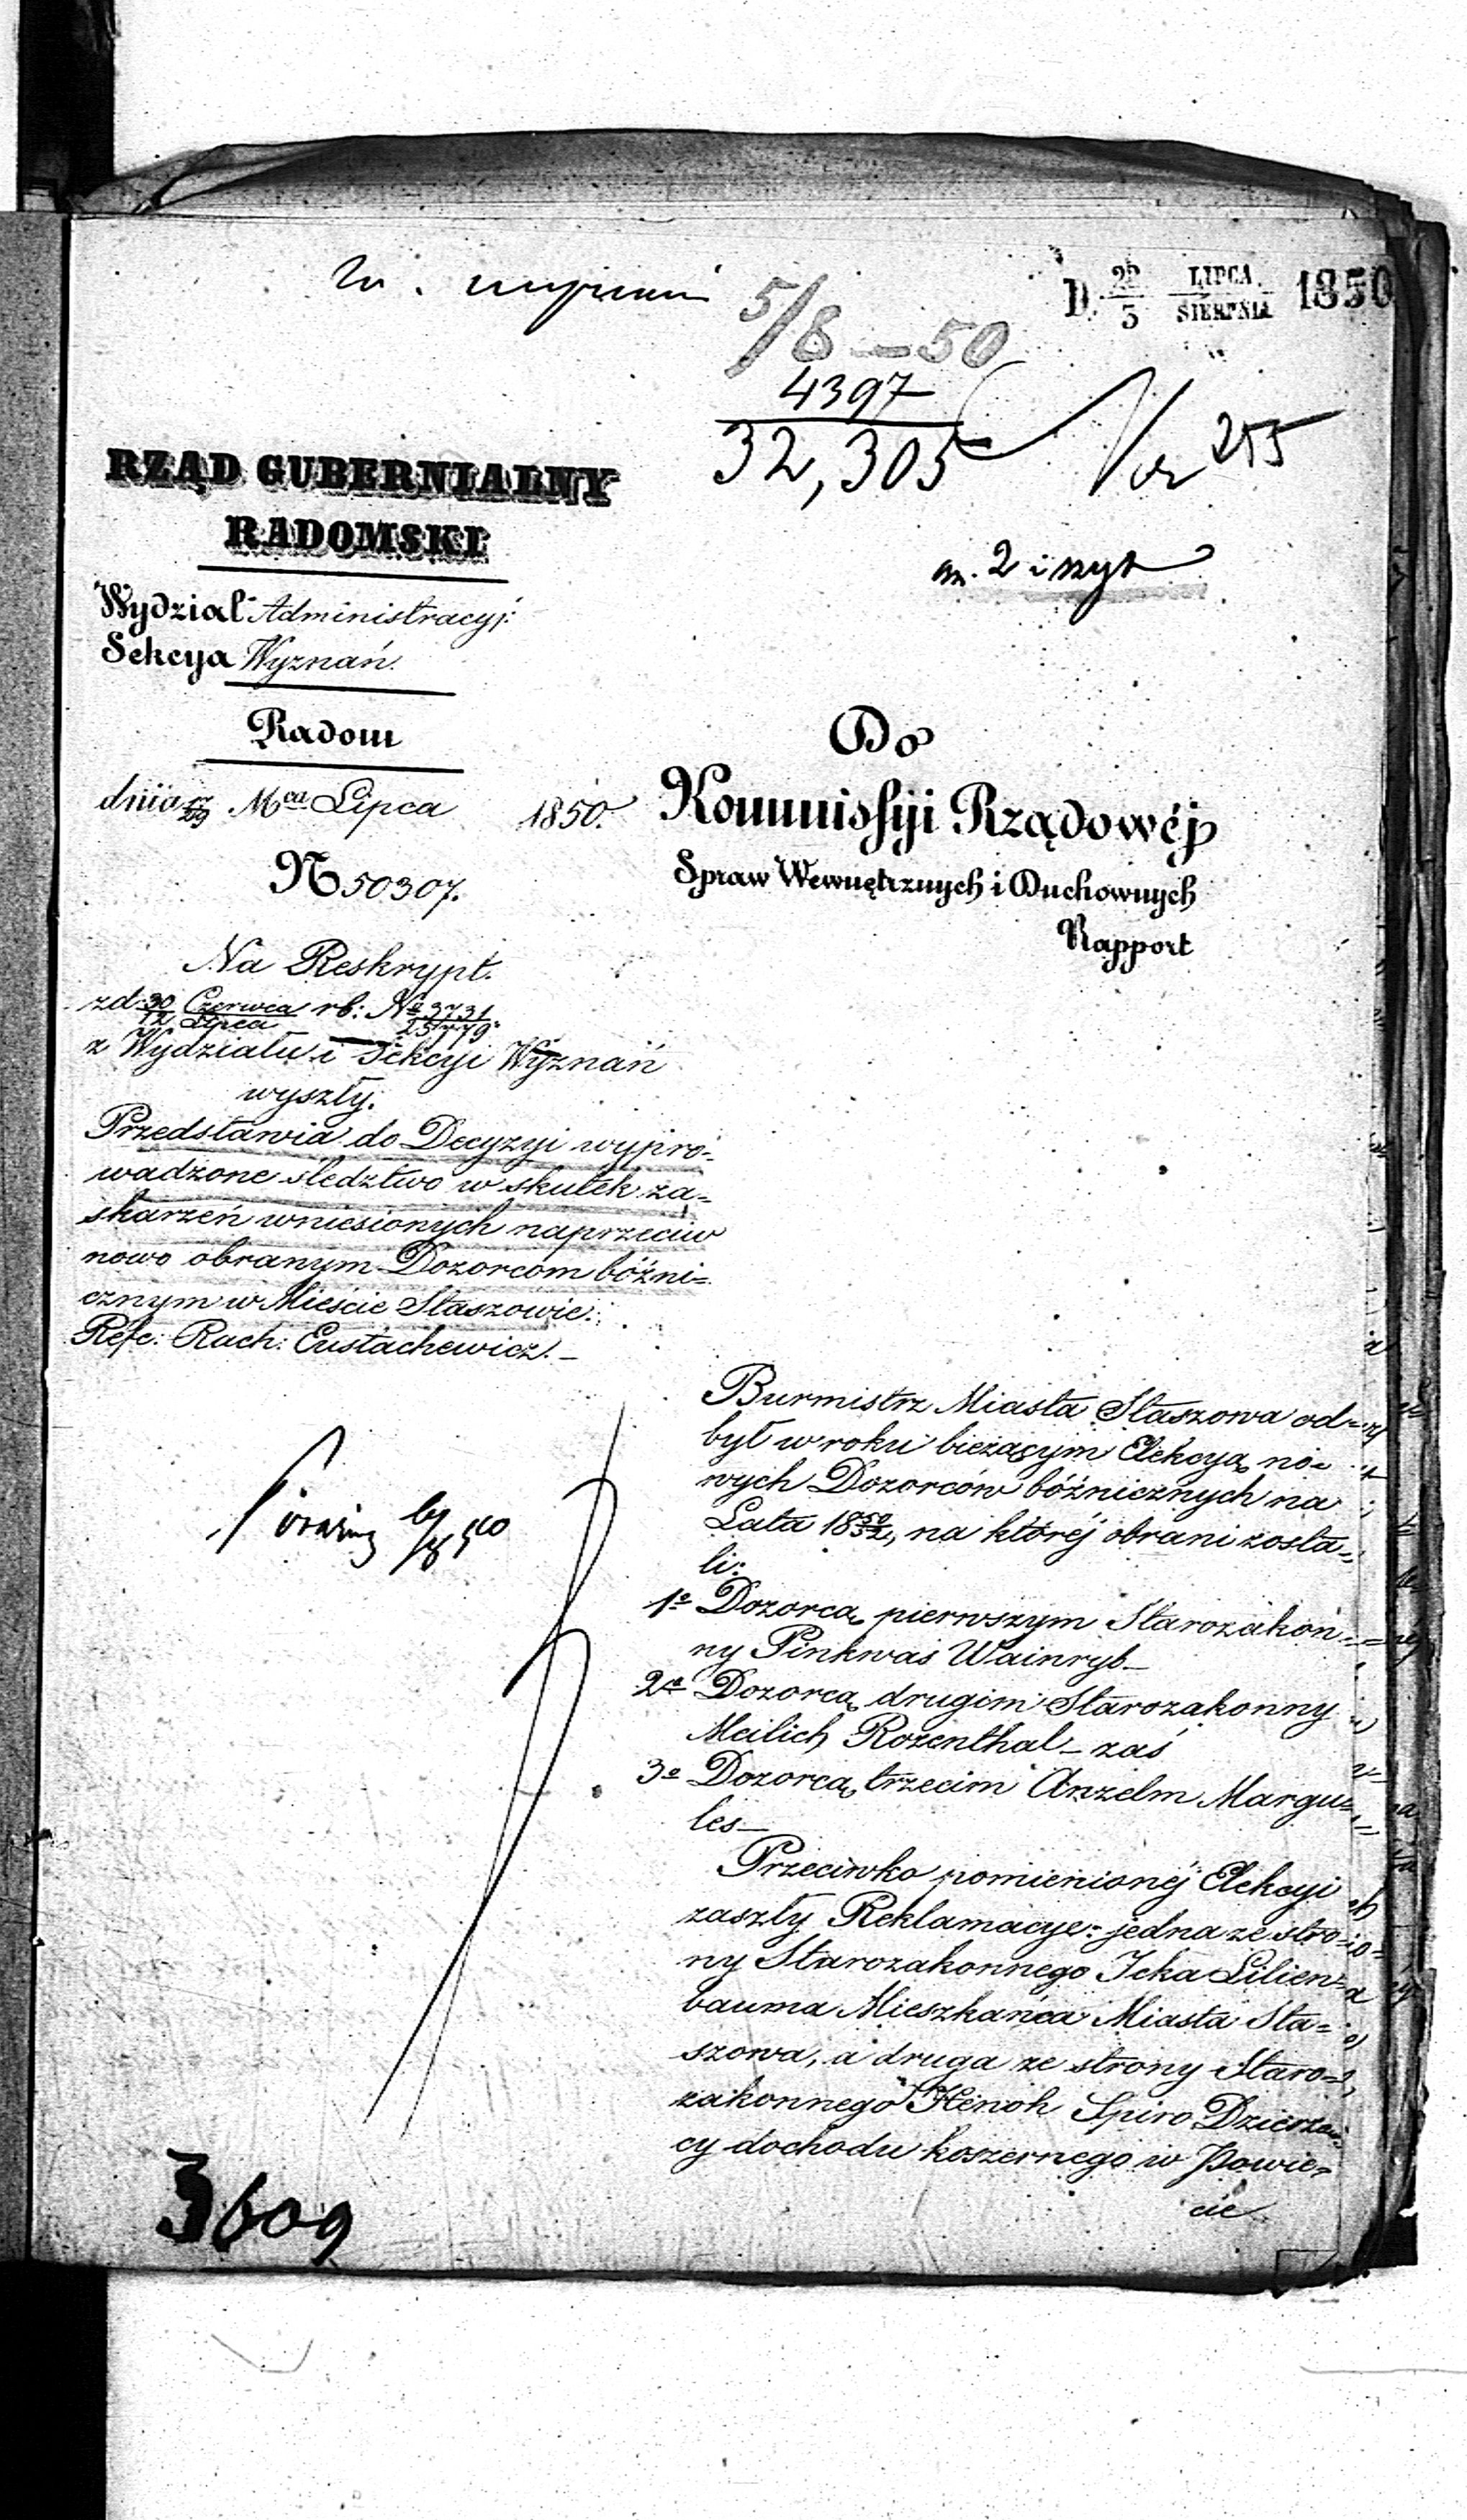 D. 22/3 LIPCA/SIERPNIA 1850
5/8 – 50
4397
32,305
255
RZĄD GUBERNIALNY
RADOMSKI
Wydział Administracyj:
Sekcya Wyznań.
Radom
dnia 17/29 Mca Lipca 1850.
N 50307.
Do
Kommissyi Rządowéj
Spraw Wewnętrznych i Duchownych
Rapport
Na Reskrypt.
zd: 30 Czerwca/12 Lipca rb: No 3731/25779
z Wydziału i Sekcyi Wyznań
wyszły.
Przedstawia do Decyzyi wypro-
wadzone śledztwo w skutek za-
skarzeń wniesionych naprzeciw
nowo obranym Dozorcom bóżni-
cznym w Mieście Staszowie.
Refe: Rach: Eustachewicz. –
Burmistrz Miasta Staszowa od-
był w roku bieżącym Elekcyą no-
wych Dozorców bóżnicznych na
Lata 1850/52, na któréj obrani zosta-
li:
1o Dozorcą pierwszym Starozakon-
ny Pinkwas Wainryb –
2o Dozorcą drugim Starozakonny
Meilich Rozenthal – zaś
3o Dozorcą trzecim Anzelm Margu-
les –
Przeciwko pomienionéj Elekcyi
zaszły Reklamacye: jedna ze stro-
ny Starozakonnego Icka Lilien-
bauma Mieszkańca Miasta Sta-
szowa, a druga ze strony Staro-
zakonnego Henoh Spiro Dzierżaw-
cy dochodu koszernego w Powie-
cie
3609